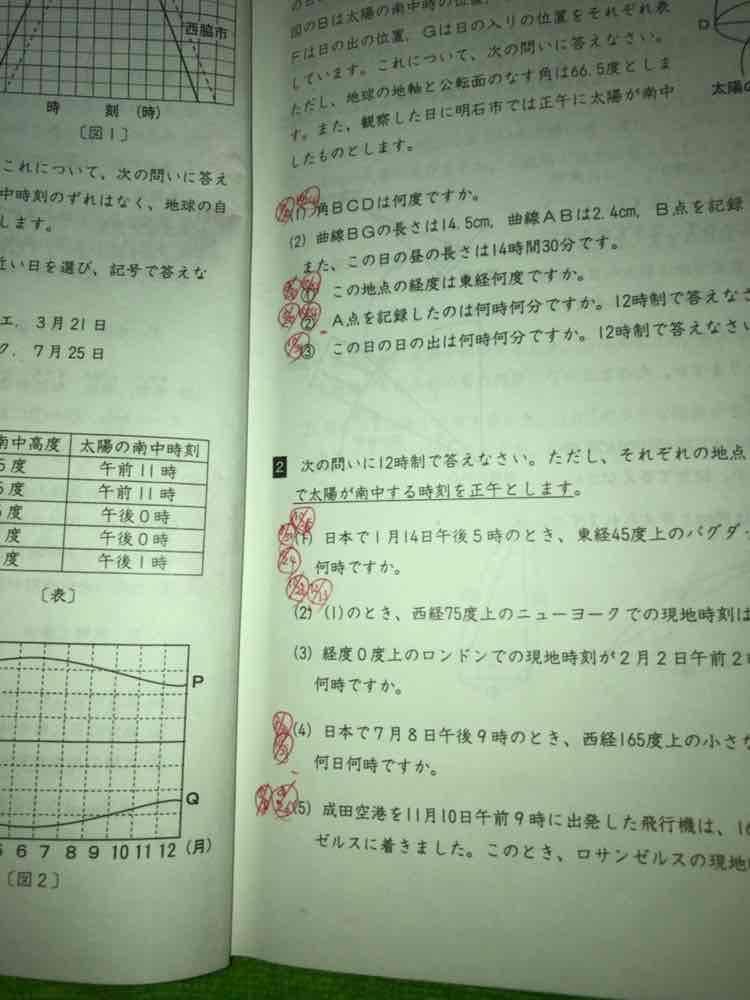 西脇市
時 刻 (時)
〔図1〕
これについて、次の問いに答え
中時刻のずれはなく、地球の自
します。
近い日を選び、記号で答えな
エ. 3月21日
ク. 7月25日
南中高度 太陽の南中時刻
5度 午前11時
5度 午前11時
5度 午後0時
度 午後0時
度 午後1時
〔表〕
P
Q
6 7 8 9 10 11 12 (月)
〔図2〕
図のBは太陽の南中時の位置,
Fは日の出の位置, Gは日の入りの位置をそれぞれ表
しています。これについて、次の問いに答えなさい。
ただし、地球の地軸と公転面のなす角は66.5度としま
す。また、観察した日に明石市では正午に太陽が南中
したものとします。
D
太陽の
(1) 角BCDは何度ですか。
(2) 曲線BGの長さは14.5cm, 曲線ABは2.4cm, B点を記録
また、この日の昼の長さは14時間30分です。
① この地点の経度は東経何度ですか。
② A点を記録したのは何時何分ですか。12時制で答えなさ
③ この日の日の出は何時何分ですか。12時制で答えなさい
2 次の問いに12時制で答えなさい。ただし、それぞれの地点
で太陽が南中する時刻を正午とします。
(1) 日本で1月14日午後5時のとき、東経45度上のバグダッ
何時ですか。
(2) (1)のとき、西経75度上のニューヨークでの現地時刻は
(3) 経度0度上のロンドンでの現地時刻が2月2日午前2
何時ですか。
(4) 日本で7月8日午後9時のとき、西経165度上の小さな
何日何時ですか。
(5) 成田空港を11月10日午前9時に出発した飛行機は、
ゼルスに着きました。このとき、ロサンゼルスの現地